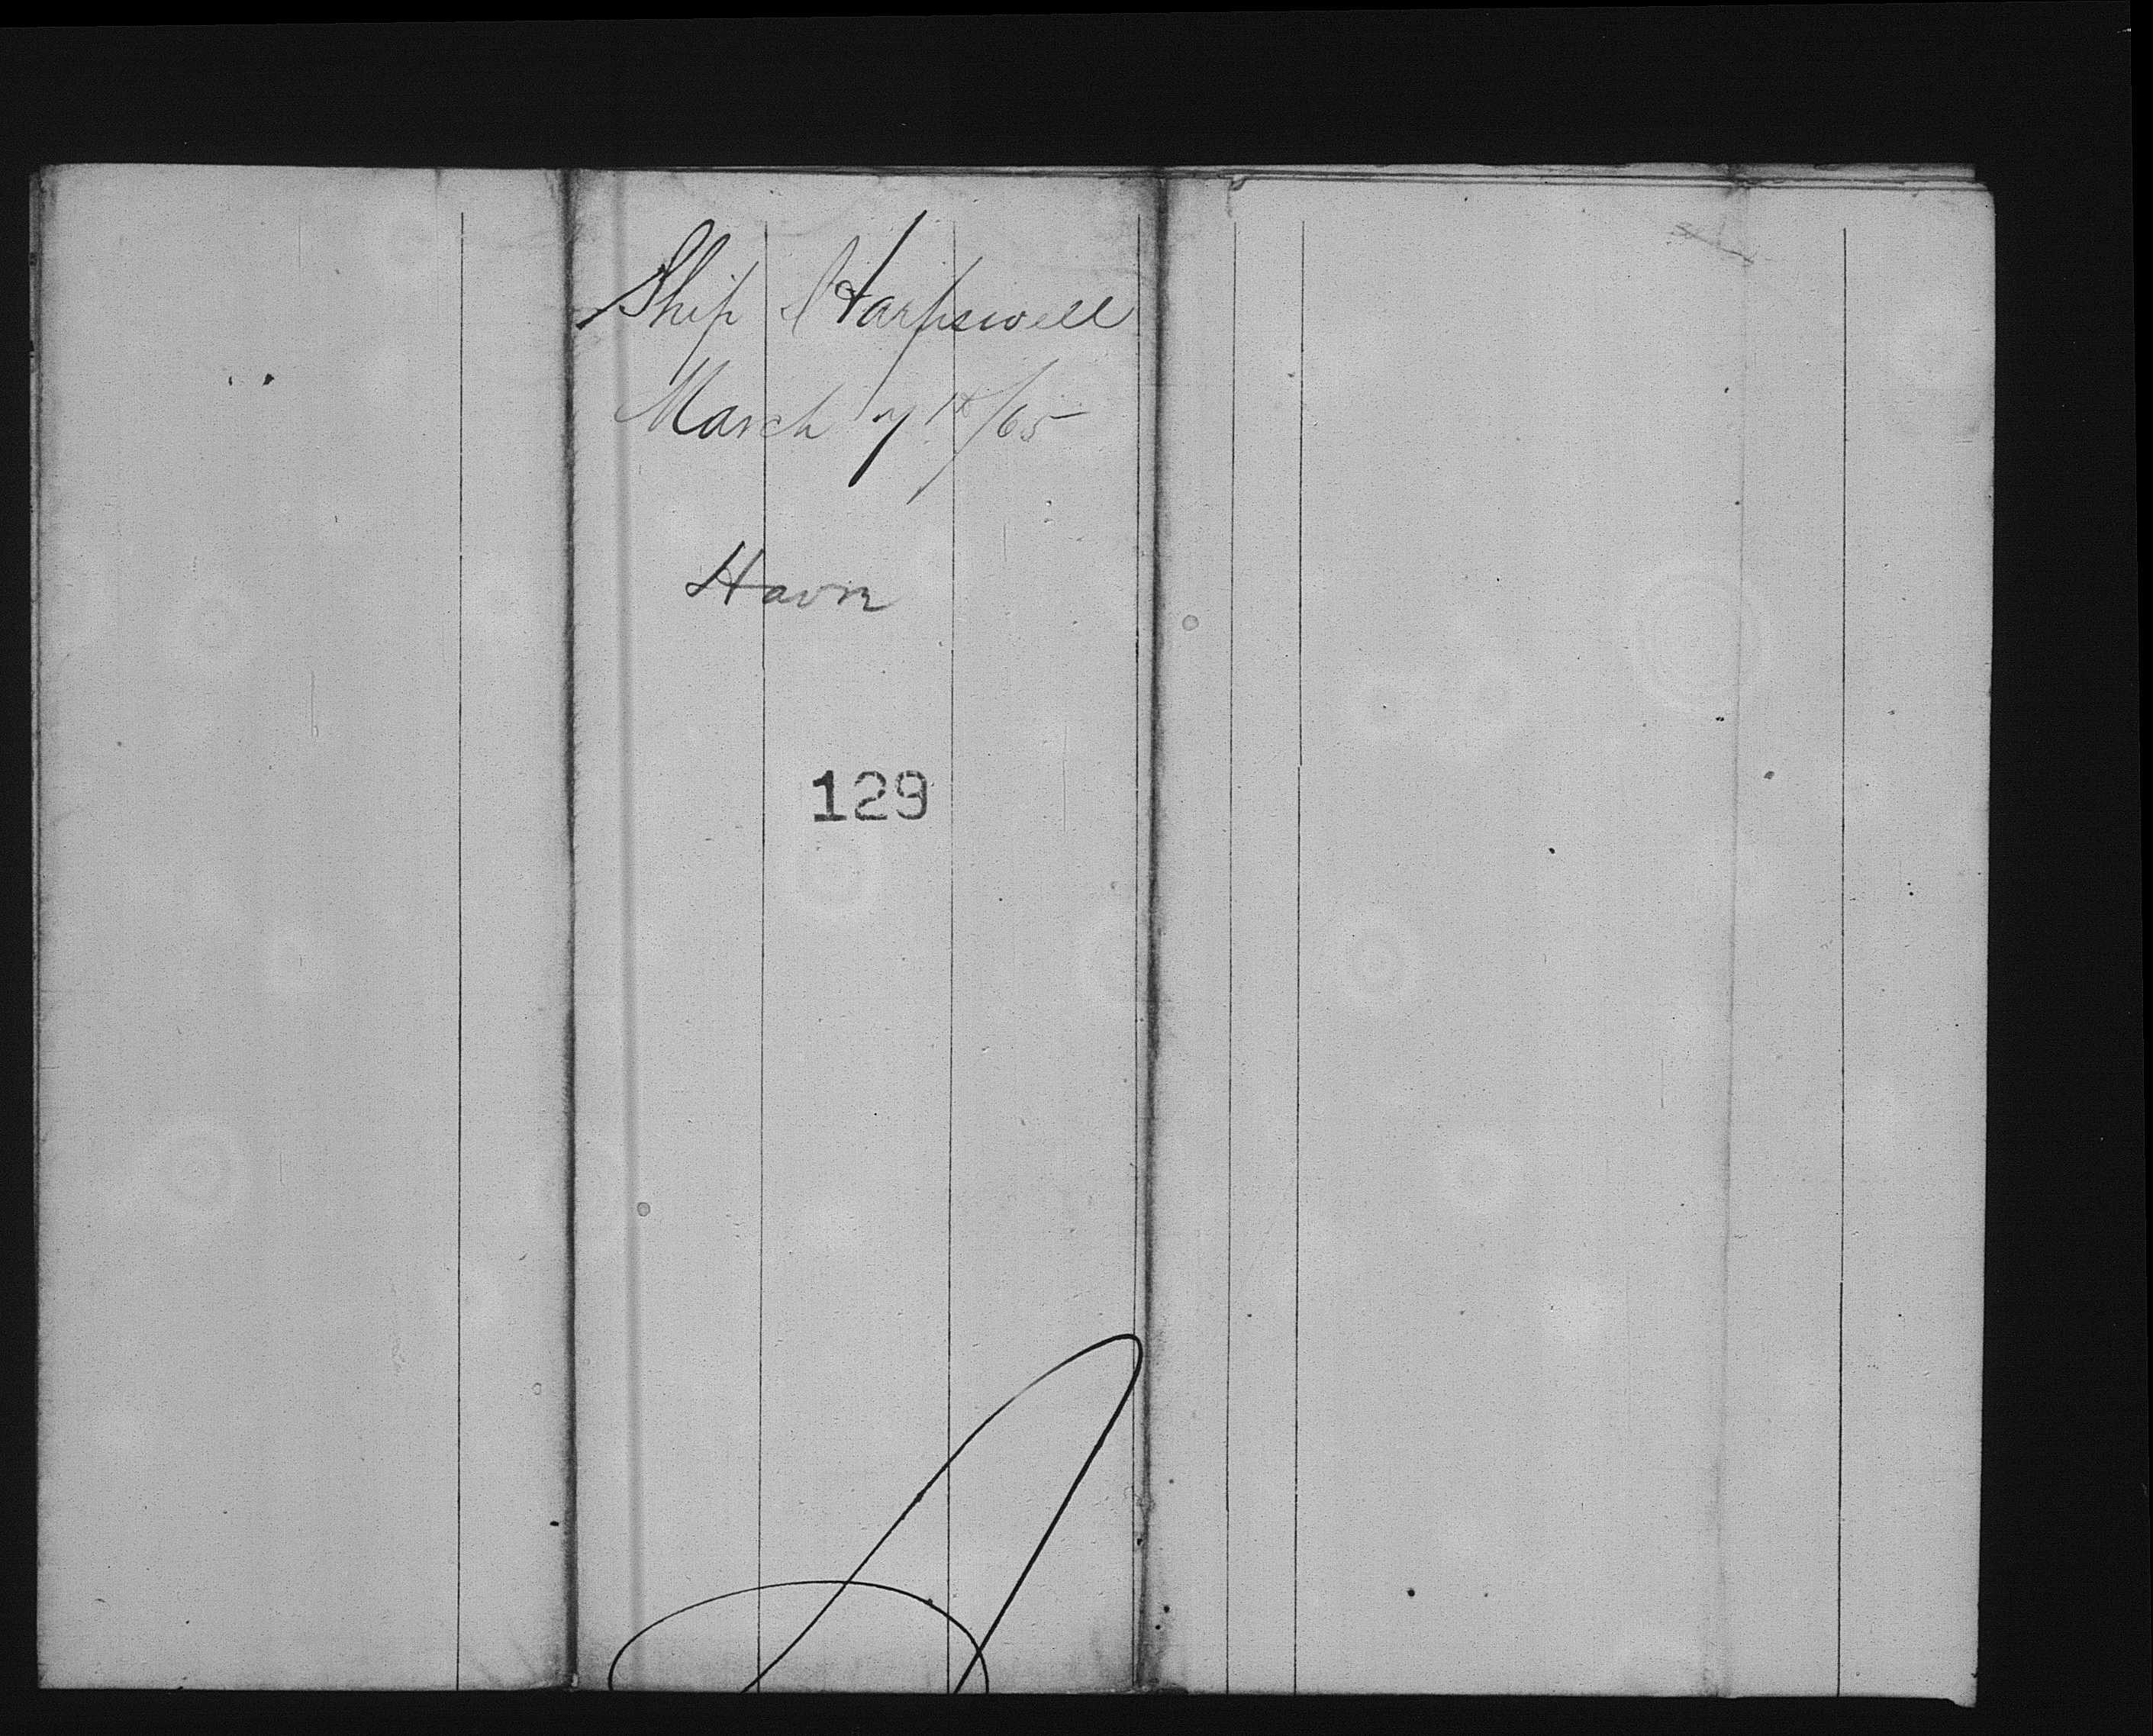 Ship Harpswell
March 7th/65
Havre
129